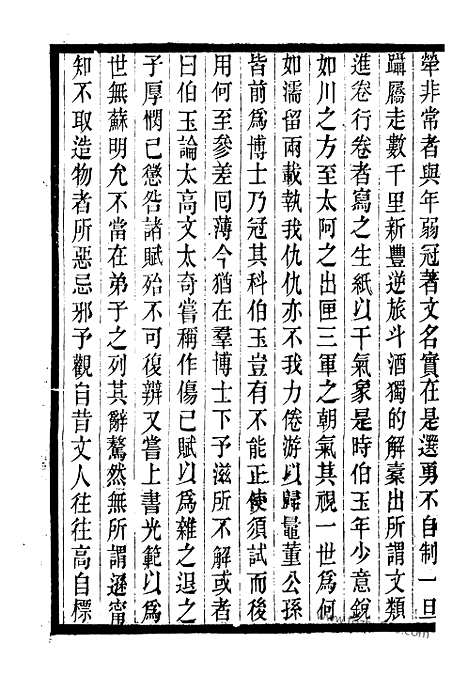 犖非常者與年弱冠著文名實在是選勇不自制一旦
躡屩走數千里新豐逆旅斗酒獨酌解橐出所謂文類
進卷行卷者寫之生紙以干氣象是時伯玉年少意銳
如川之方至太阿之出匣三軍之朝氣其視一世爲何
如濡留兩載執我仇仇亦不我力倦游以歸鼂董公孫
皆前爲博士乃冠其科伯玉豈有不能正使須試而後
用何至參差囘薄今猶在羣博士下予滋所不解或者
曰伯玉論太高文太奇嘗稱作傷已賦以爲雜之退之
子厚憫已懲咎諸賦殆不可復辨又嘗上書光範以爲
世無蘇明允不當在弟子之列其辭驁然無所謂遜甯
知不取造物者所惡忌邪予觀自昔文人往往高自標